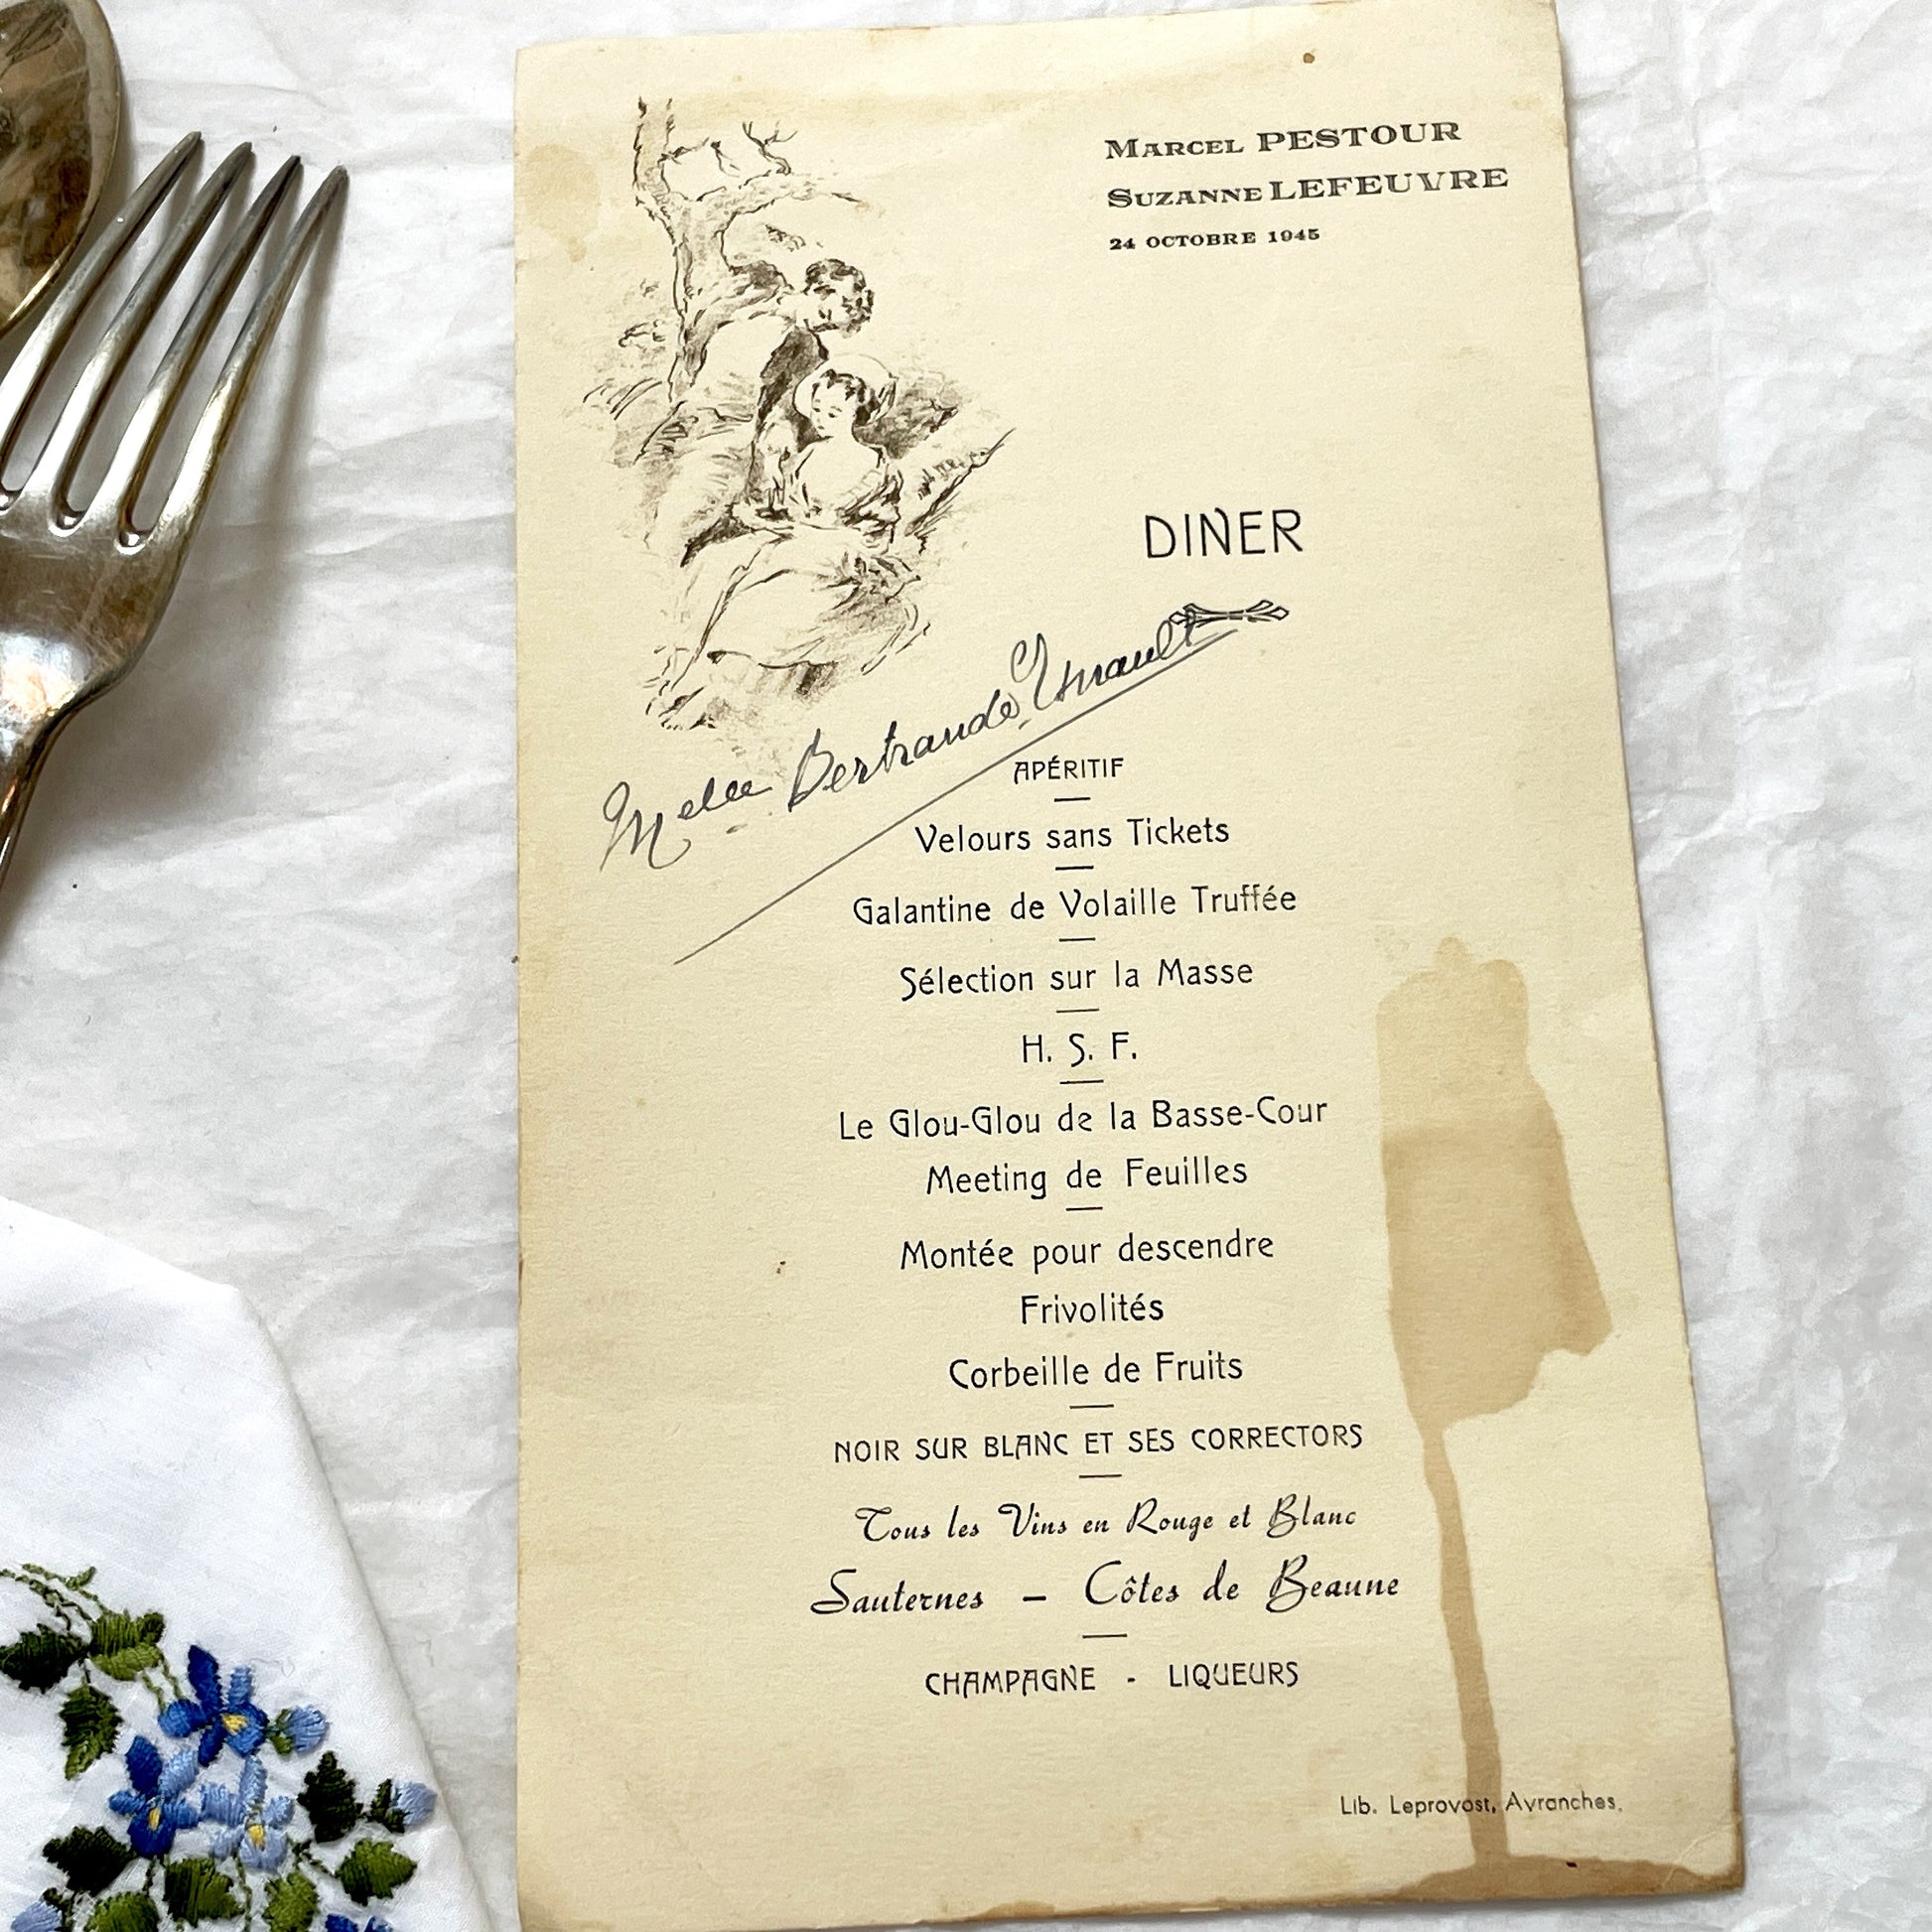 Marcel PESTOUR
Suzanne LEFEUVRE
24 OCTOBRE 1945
DINER
Melle Bertrande Esnault
APÉRITIF
Velours sans Tickets
Galantine de Volaille Truffée
Sélection sur la Masse
H. S. F.
Le Glou-Glou de la Basse-Cour
Meeting de Feuilles
Montée pour descendre
Frivolités
Corbeille de Fruits
NOIR SUR BLANC ET SES CORRECTORS
Tous les Vins en Rouge et Blanc
Sauternes – Côtes de Beaune
CHAMPAGNE - LIQUEURS
Lib. Leprovost, Avranches.